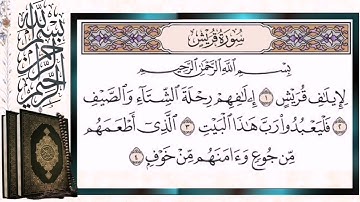 بسم الله الرحمن الرحيم
سُورَةُ قُرَيْشٍ
بِسْمِ اللَّهِ الرَّحْمَٰنِ الرَّحِيمِ
لِإِيلَٰفِ قُرَيْشٍ ١ إِۦلَٰفِهِمْ رِحْلَةَ الشِّتَآءِ وَالصَّيْفِ
٢ فَلْيَعْبُدُوا۟ رَبَّ هَٰذَا الْبَيْتِ ٣ الَّذِىٓ أَطْعَمَهُم
مِّن جُوعٍ وَءَامَنَهُم مِّنْ خَوْفٍۭ ٤